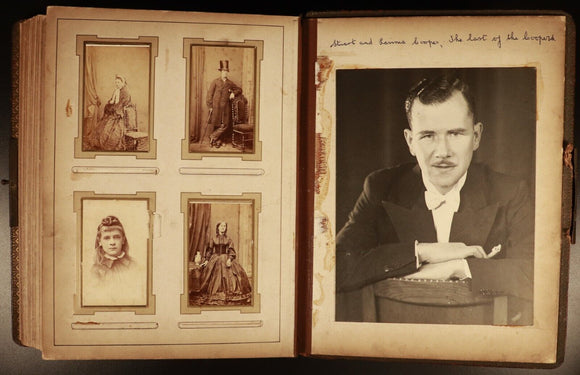 Stuart and Cooper, The last of the Coopers